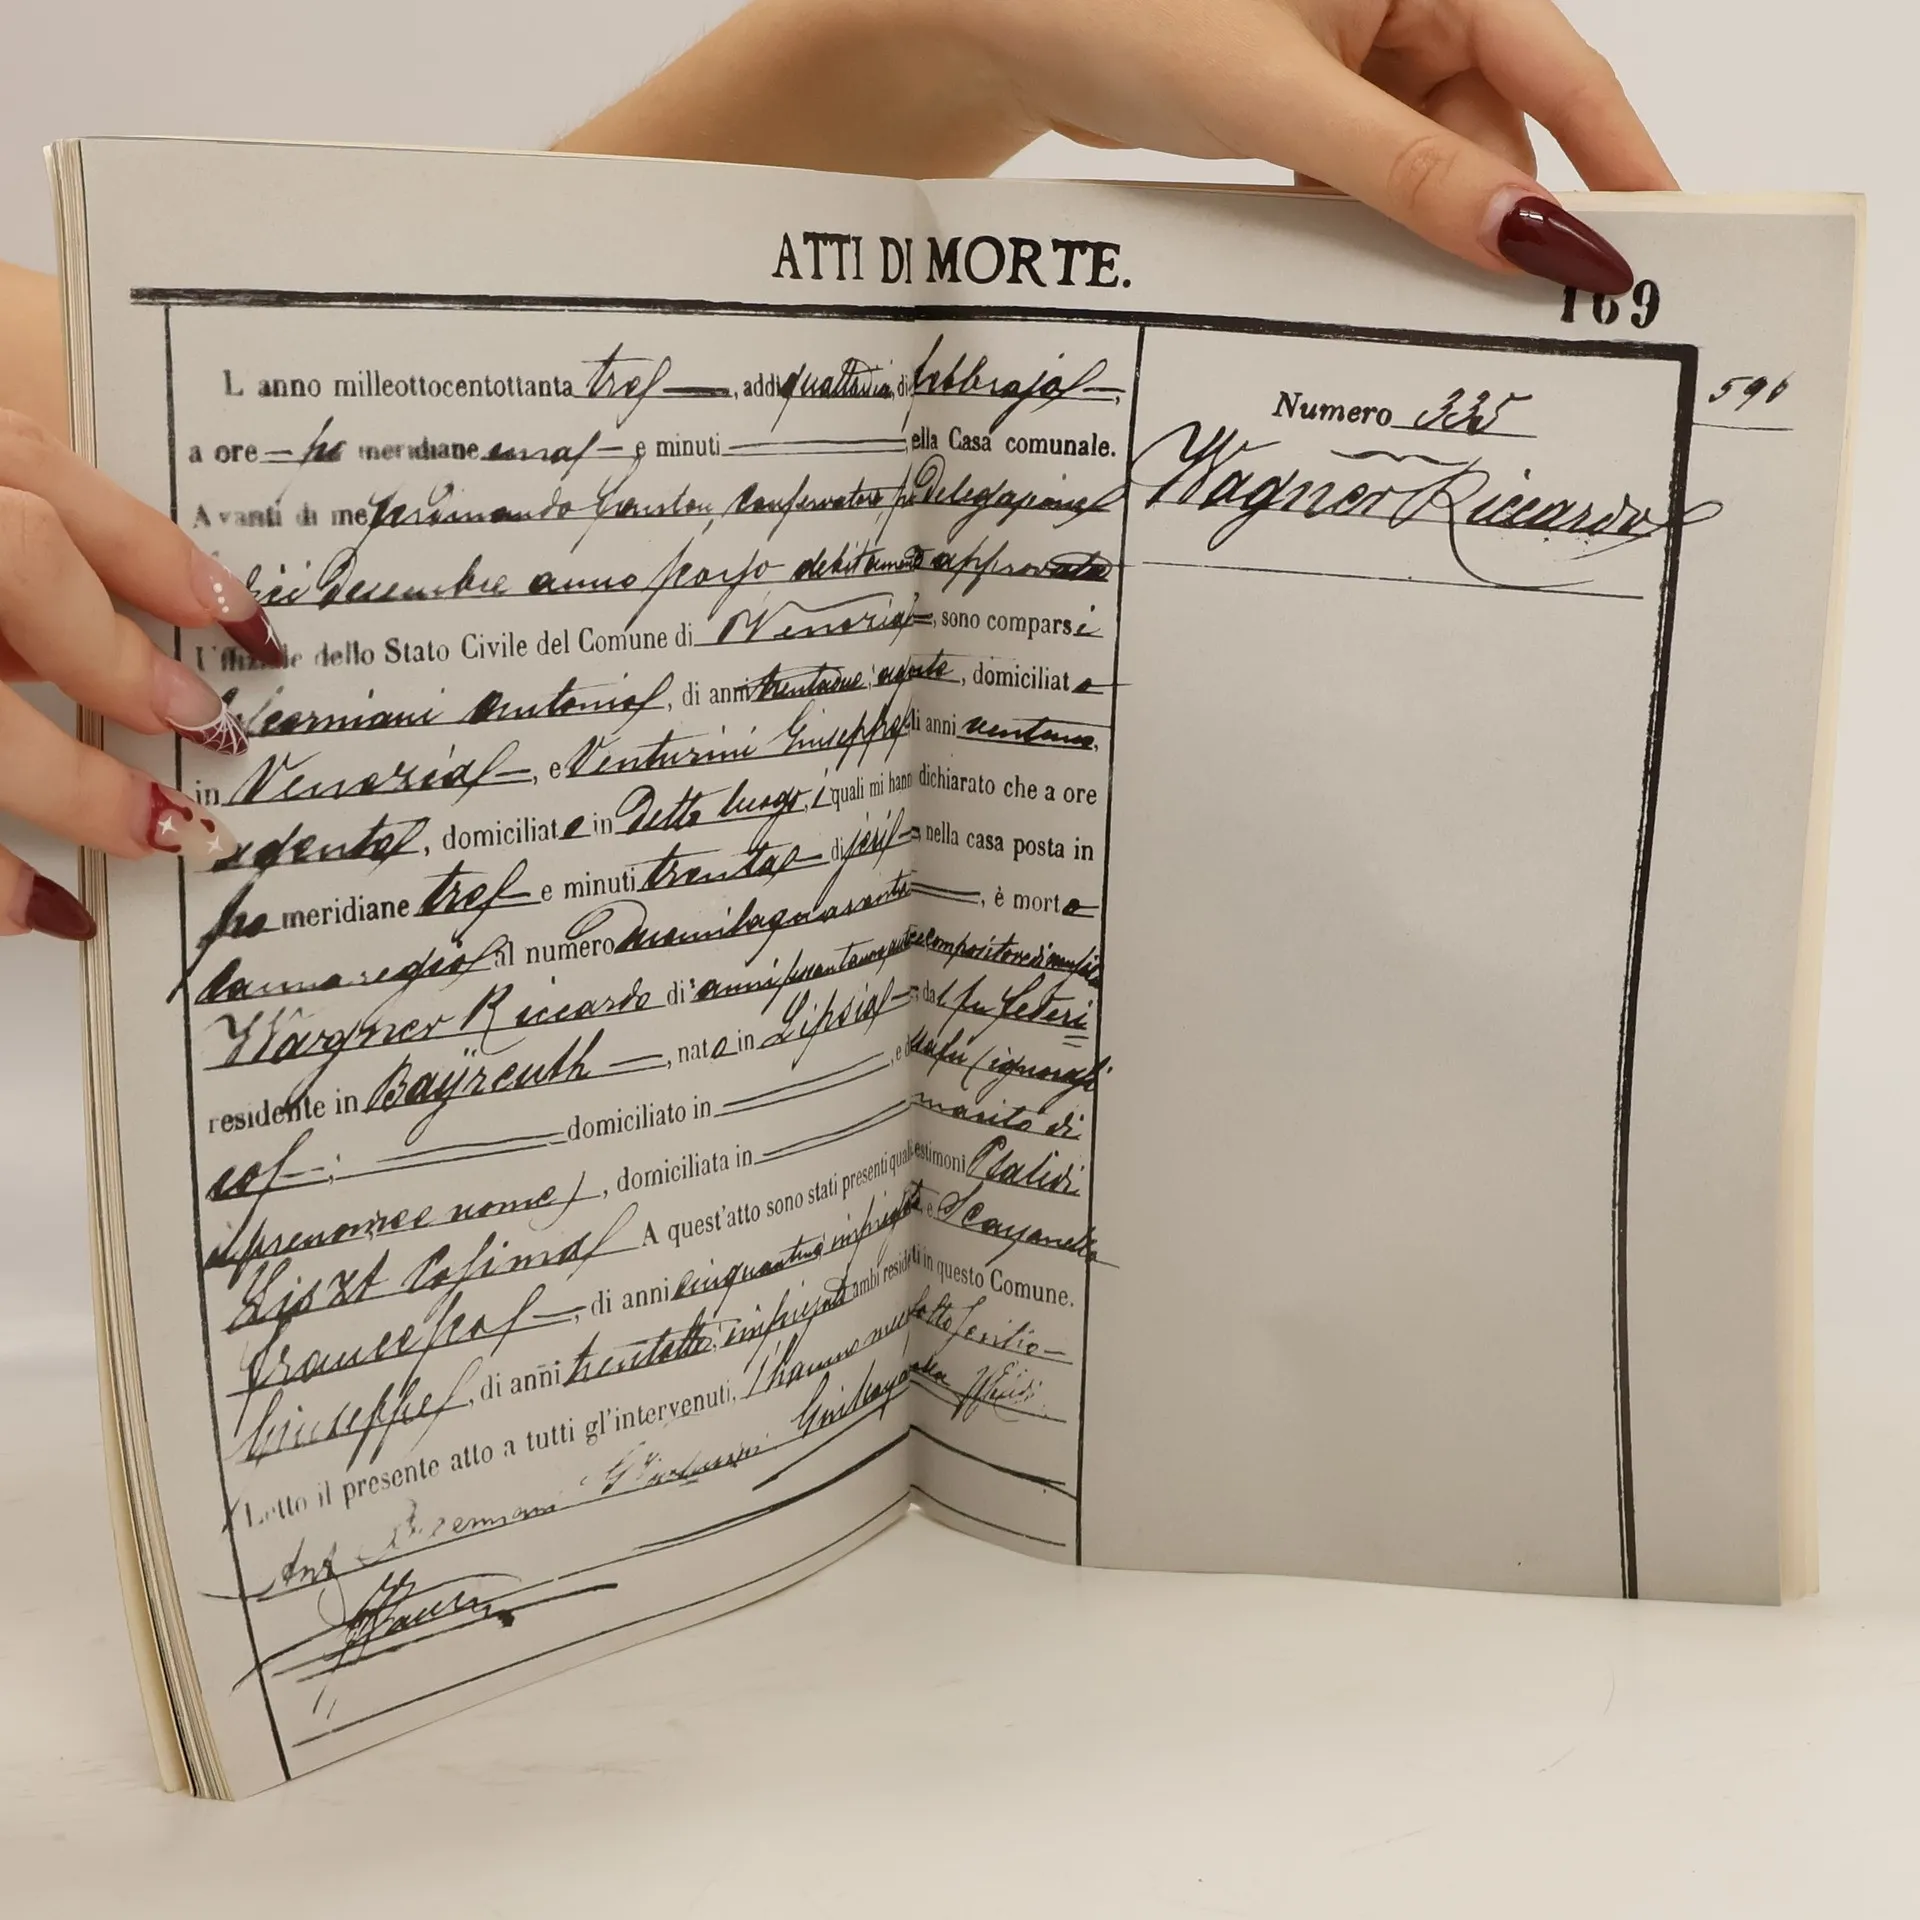 ATTI DI MORTE.
169
L'anno milleottocentottanta tre, addì quattordici di febbrajo,
a ore po meridiane una e minuti ella Casa comunale.
Avanti di me Conservatore per Delegazione
Decembre anno debitamente approvata
Uffiziale dello Stato Civile del Comune di Venezia, sono comparsi
Antonio, di anni trentadue, agente, domiciliato
in Venezia, e Venturini Giuseppe di anni ventuno,
agente, domiciliato in detto luogo, i quali mi hanno dichiarato che a ore
po meridiane tre e minuti trenta di jeri, nella casa posta in
Cannaregio al numero duemilaquaranta, è morto
Wagner Riccardo di anni sessantanove, compositore di musica
residente in Bayreuth, nato in Lipsia, da fu Federi
co; domiciliato in, e da fu (ignorasi
il prenome e nome), domiciliata in marito di
Liszt Cosima A quest'atto sono stati presenti quali testimoni
Francesco, di anni cinquantuno, impiegato, e
Giuseppe, di anni trentotto, impiegato ambi residenti in questo Comune.
Letto il presente atto a tutti gl'intervenuti, l'hanno meco sottoscritto
Ant
Numero 335
Wagner Riccardo